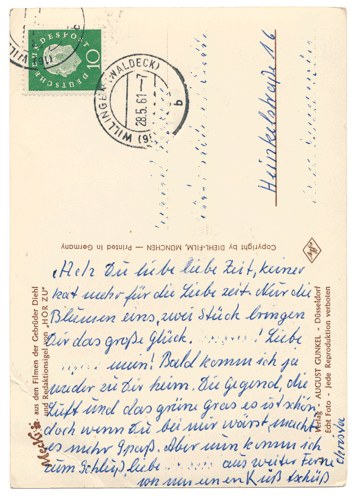 DEUTSCHE BUNDESPOST
10
WILLINGEN (WALDECK)
28.5.61-7
b
Heinkelstraße 16
Copyright by DIEHL-FILM, MÜNCHEN — Printed in Germany
Mecki
aus den Filmen der Gebrüder Diehl
und Redaktionsigel von „HÖR ZU"
„Ach Du liebe liebe Zeit, keiner
hat mehr für die Liebe zeit. Nur die
Blumen eins, zwei Stück bringen
Dir das große Glück. ! Liebe
! Bald komm ich ja
wieder zu Dir heim. Die Gegend, die
Luft und das grüne Gras es ist schön
doch wenn Du bei mir wärst macht
es mehr Spaß. Aber nun komm ich
zum Schluß, liebe aus weiter Ferne
von mir einen Kuß tschüß
Christa
Verlag AUGUST GUNKEL - Düsseldorf
Echt Foto - Jede Reproduktion verboten